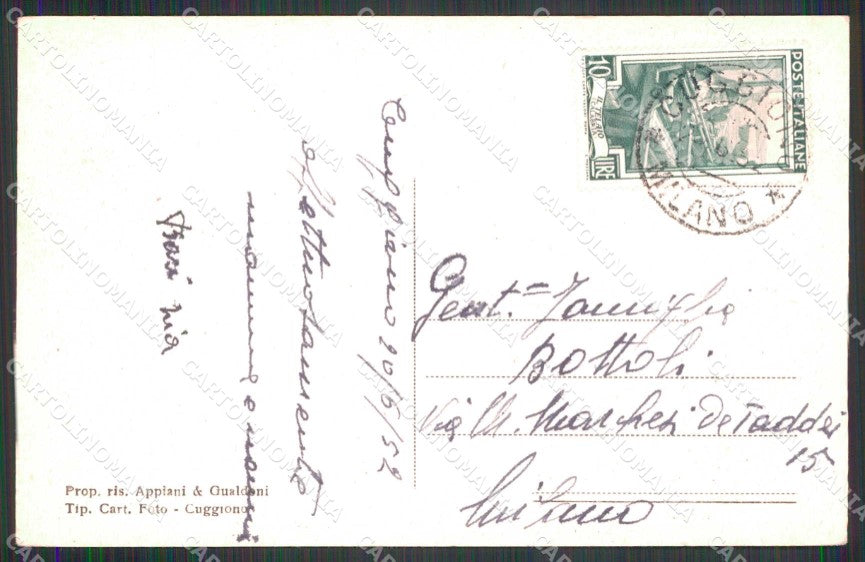 Cuggiono 20/6/52
Affettuosamente
mamma e nonni
Baci Pia
POSTE ITALIANE
10
LIRE
IL TELAIO
CUGGIONO
* MILANO *
Gent= Famiglia
Bottoli
Via M. Marchesi De Taddei
15
Milano
Prop. ris. Appiani & Gualdoni
Tip. Cart. Foto - Cuggiono
CARTOLINOMANIA